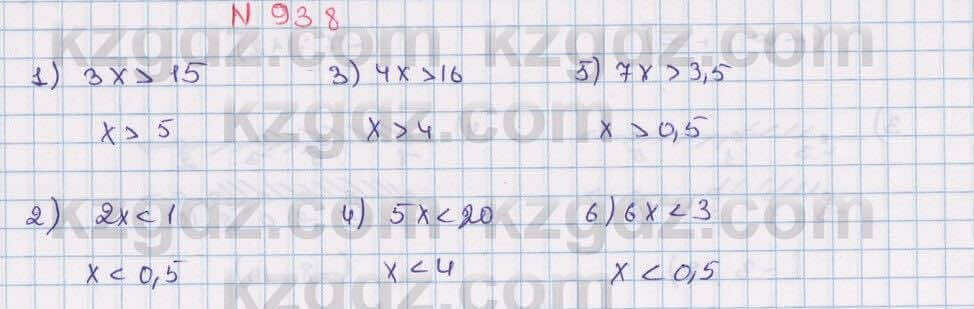 N 938
1) 3x > 15 3) 4x > 16 5) 7x > 3,5
x > 5 x > 4 x > 0,5
2) 2x < 1 4) 5x < 20 6) 6x < 3
x < 0,5 x < 4 x < 0,5
kzgdz.com kzgdz.com
kzgdz.com kzgdz.com
kzgdz.com kzgdz.com
kzgdz.com kzgdz.com